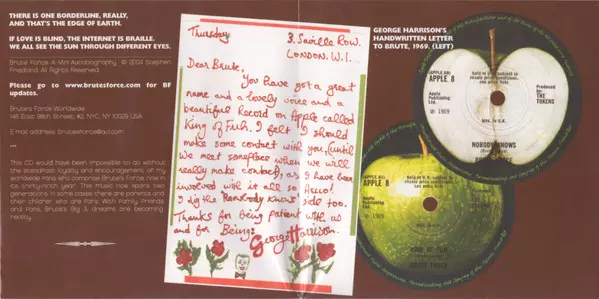 THERE IS ONE BORDERLINE, REALLY,
AND THAT'S THE EDGE OF EARTH.
IF LOVE IS BLIND, THE INTERNET IS BRAILLE.
WE ALL SEE THE SUN THROUGH DIFFERENT EYES.
Brute Force: A Mini Autobiography © 2004 Stephen
Friedland All Rights Reserved
Please go to www.brutesforce.com for BF
updates.
Brute's Force Worldwide
146 East 98th Street, #2, NYC, NY 10029 USA
E mail address: brutesforce@aol.com
***
This CD would have been impossible to do without
the steadfast loyalty and encouragement of my
worldwide fans who comprise Brute's Force, now in
its thirty-ninth year. This music now spans two
generations. In some cases there are parents and
their children who are fans. With Family, Friends
and Fans, Brute's Big 3, dreams are becoming
reality.
Thursday
3. Saville Row.
LONDON. W.1..
Dear Brute,
You have got a great
name and a lovely voice and a
beautiful Record on Apple called
King of Fuh. I felt I should
make some contact with you, (until
we meet someplace when we will
really make contact), as I have been
involved with it all so Hello!
I dig the 'Nobody Knows' side too.
Thanks for being patient with us
and for Being:
George Harrison.
GEORGE HARRISON'S
HANDWRITTEN LETTER
TO BRUTE, 1969. (LEFT)
(APPLE 8B)
APPLE 8
Sold in U.K. subject to
resale price conditions,
see price lists
Apple
Publishing
Ltd.
℗ 1969
Produced
by:
THE
TOKENS
MFD. IN U.K.
NOBODY KNOWS
(APPLE 8A)
APPLE 8
Sold in U.K. subject to
resale price conditions,
see price lists
Apple
Publishing
Ltd.
℗ 1969
KING OF FUH
BRUTE FORCE